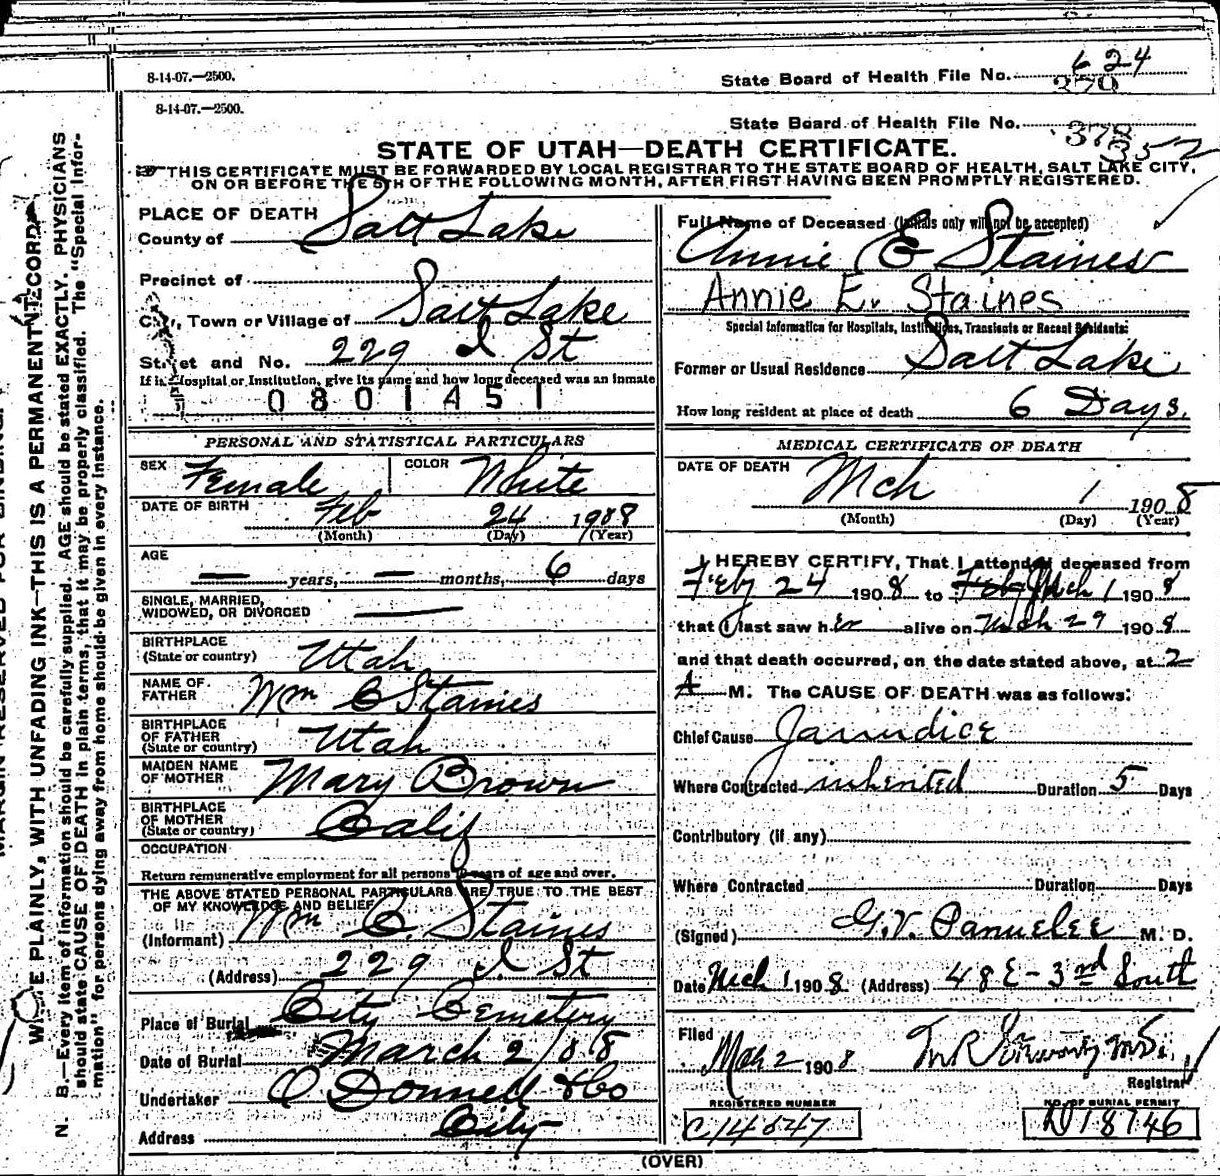 8-14-07.—2500.
State Board of Health File No. 624
370
8-14-07.—2500.
State Board of Health File No. 378
352
STATE OF UTAH—DEATH CERTIFICATE.
THIS CERTIFICATE MUST BE FORWARDED BY LOCAL REGISTRAR TO THE STATE BOARD OF HEALTH, SALT LAKE CITY,
ON OR BEFORE THE 5TH OF THE FOLLOWING MONTH, AFTER FIRST HAVING BEEN PROMPTLY REGISTERED.
PLACE OF DEATH
County of Salt Lake
Precinct of
City, Town or Village of Salt Lake
Street and No. 229 I St
If in Hospital or Institution, give its name and how long deceased was an inmate
0801451
PERSONAL AND STATISTICAL PARTICULARS
SEX Female COLOR White
DATE OF BIRTH Feb 24 1908
(Month) (Day) (Year)
AGE — years, — months, 6 days
SINGLE, MARRIED,
WIDOWED, OR DIVORCED —
BIRTHPLACE
(State or country) Utah
NAME OF
FATHER Wm C Staines
BIRTHPLACE
OF FATHER
(State or country) Utah
MAIDEN NAME
OF MOTHER Mary Brown
BIRTHPLACE
OF MOTHER
(State or country) Calif
OCCUPATION
Return remunerative employment for all persons years of age and over.
THE ABOVE STATED PERSONAL PARTICULARS ARE TRUE TO THE BEST
OF MY KNOWLEDGE AND BELIEF
(Informant) Wm C. Staines
(Address) 229 I St
Place of Burial City Cemetery
Date of Burial March 2/08
Undertaker O Donnell & Co
Address City
Full Name of Deceased (Initials only will not be accepted)
Annie E Staines
Annie E. Staines
Special Information for Hospitals, Institutions, Transients or Recent Residents:
Former or Usual Residence Salt Lake
How long resident at place of death 6 Days.
MEDICAL CERTIFICATE OF DEATH
DATE OF DEATH Mch 1 1908
(Month) (Day) (Year)
I HEREBY CERTIFY, That I attended deceased from
Feby 24 1908 to Feby Mch 1 1908
that I last saw her alive on Mch 29 1908
and that death occurred, on the date stated above, at 2
A M. The CAUSE OF DEATH was as follows:
Chief Cause Jaundice
Where Contracted inherited Duration 5 Days
Contributory (if any)
Where Contracted Duration Days
(Signed) G. V. M. D.
Date Mch 1 1908 (Address) 48 E - 3rd South
Filed
Mar 2 1908
Registrar
REGISTERED NUMBER NO. OF BURIAL PERMIT
C14547 D18746
(OVER)
WRITE PLAINLY, WITH UNFADING INK—THIS IS A PERMANENT RECORD.
N. B.—Every item of information should be carefully supplied. AGE should be stated EXACTLY. PHYSICIANS
should state CAUSE OF DEATH in plain terms, that it may be properly classified. The "Special Infor-
mation" for persons dying away from home should be given in every instance.